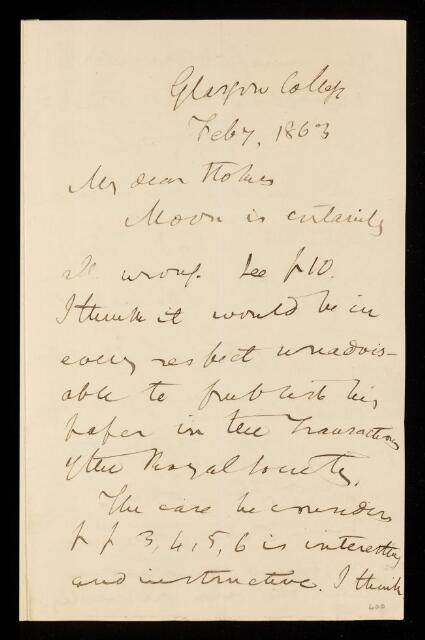 Glasgow College
Feb 7, 1863
My dear Stokes
Moon is certainly
all wrong. See p 10.
I think it would be in
every respect unadvis-
able to publish his
paper in the Transactions
of the Royal Society.
The case he considers
p p 3, 4, 5, 6 is interesting
and instructive. I think
400